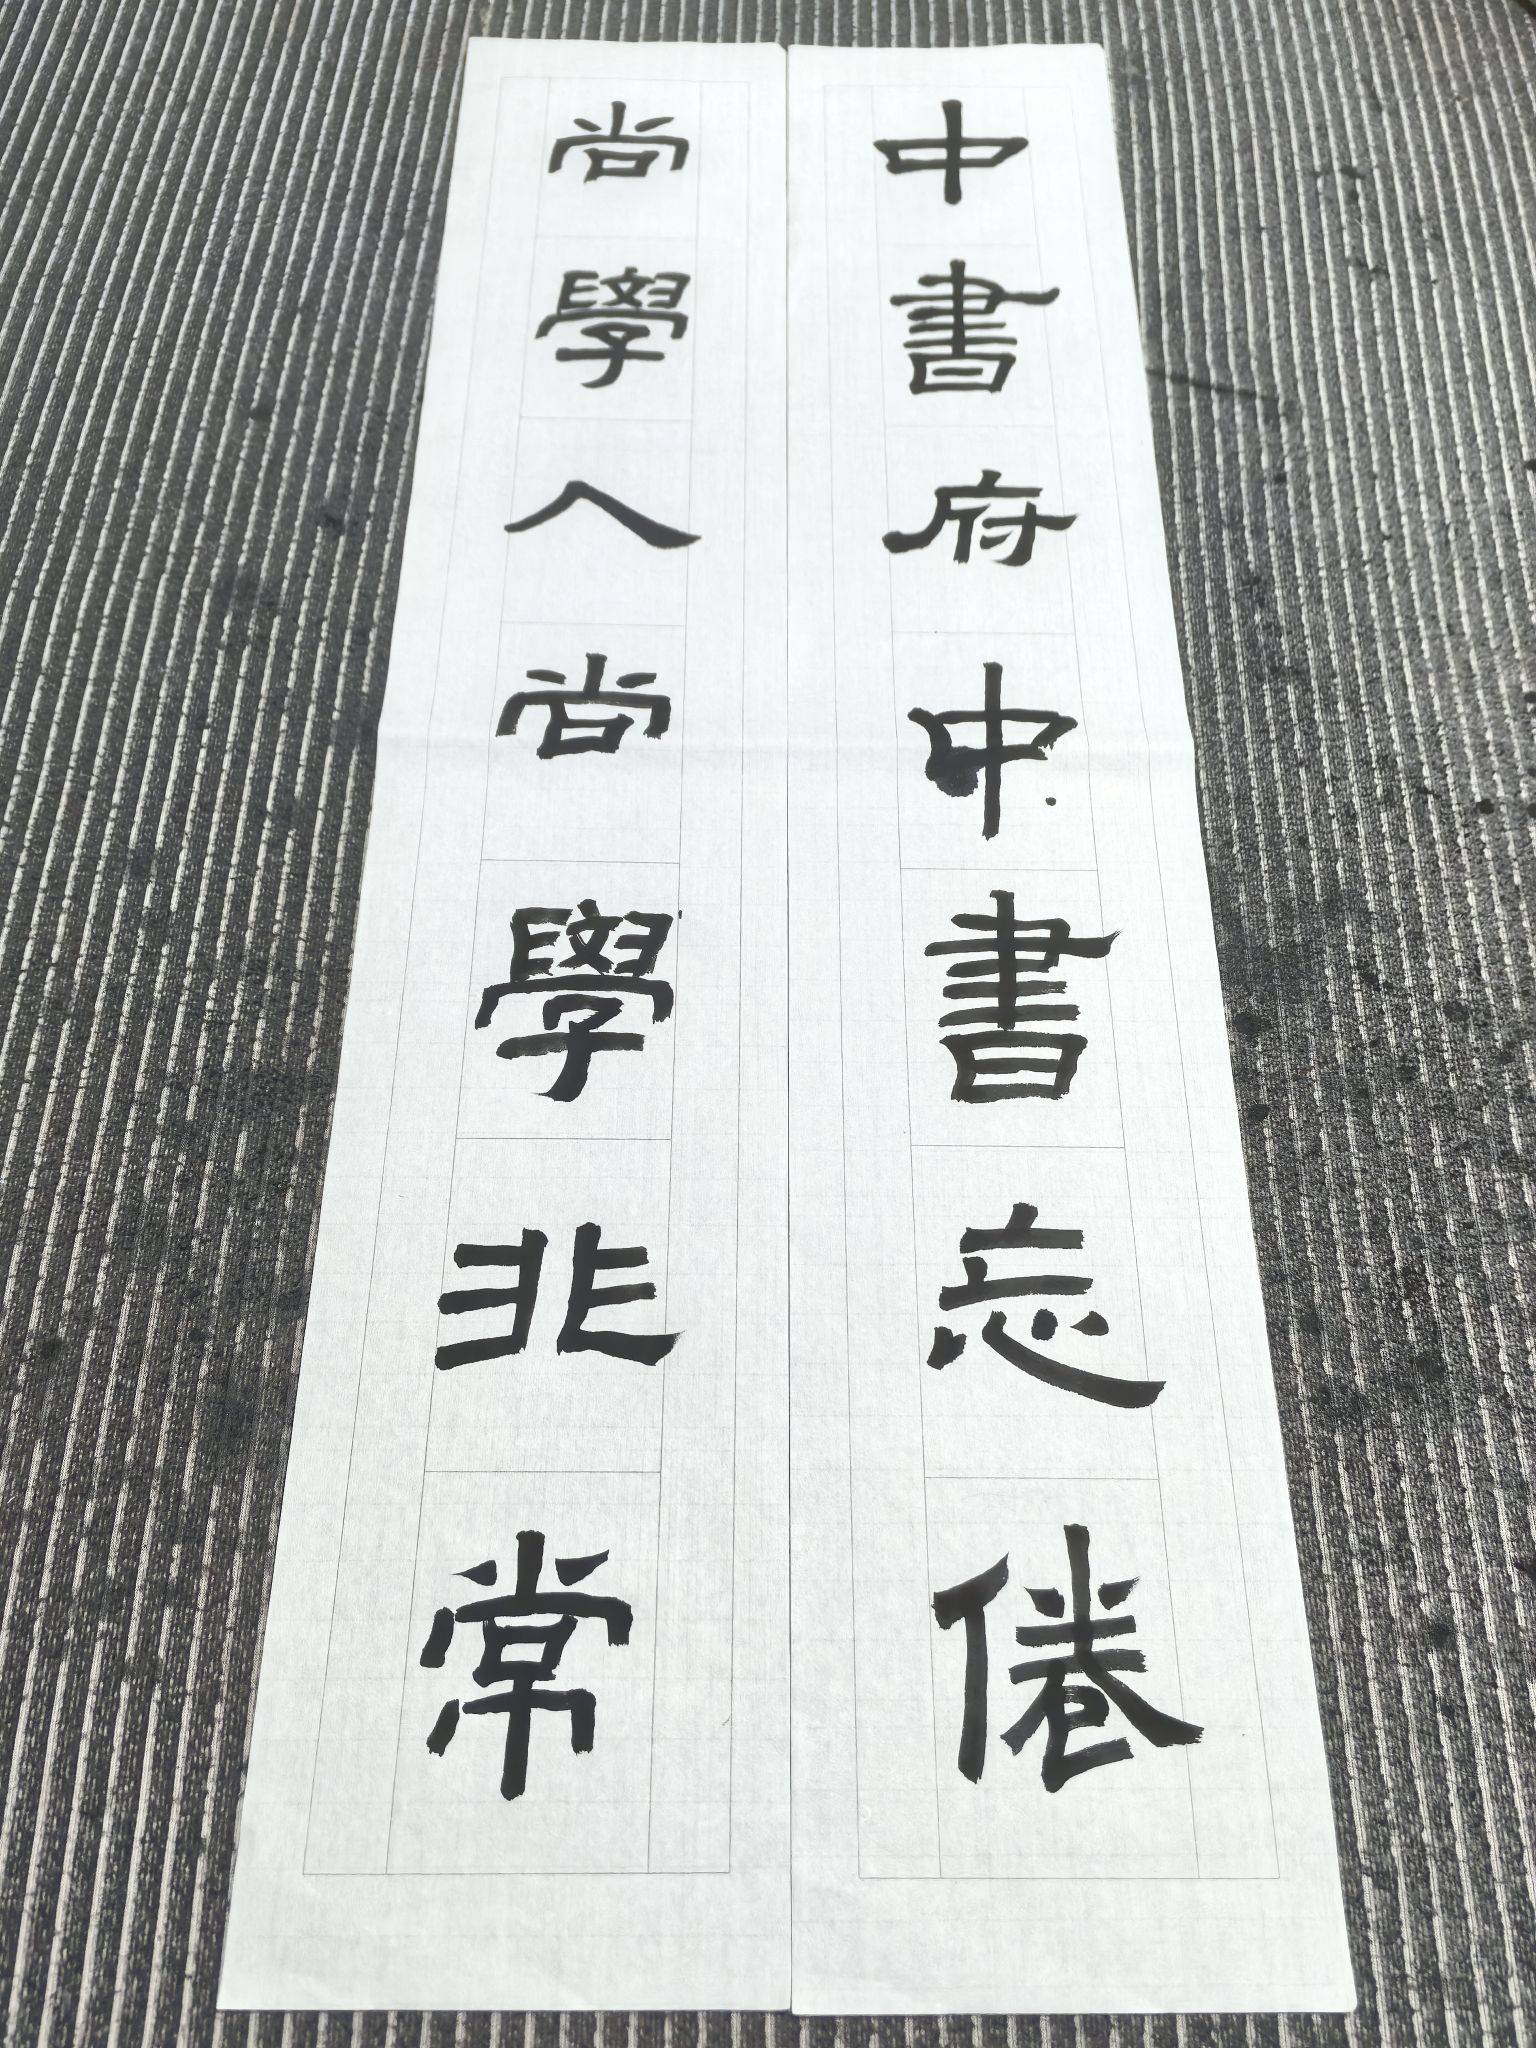 中書府中書忘倦
尚學人尚學非常